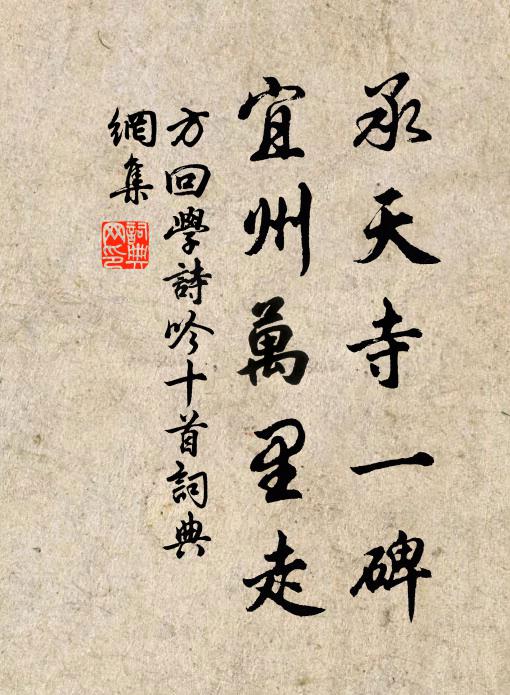 承天寺一碑
宜州萬里走
方回學詩吟十首詞典
網集
詞典
网印